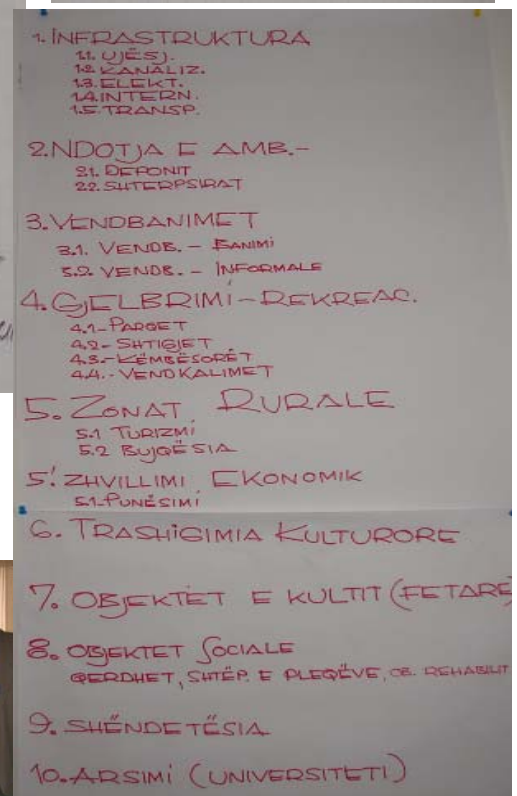 1. INFRASTRUKTURA
1.1. UJËSJ.
1.2. KANALIZ.
1.3. ELEKT.
1.4. INTERN.
1.5. TRANSP.
2. NDOTJA E AMB.-
2.1. DEPONIT
2.2. SHTERPSIRAT
3. VENDBANIMET
3.1. VENDB. - BANIMI
3.2. VENDB. - INFORMALE
4. GJELBRIMI - REKREAC.
4.1- PARQET
4.2- SHTIGJET
4.3.- KËMBËSORËT
4.4.- VENDKALIMET
5. ZONAT RURALE
5.1 TURIZMI
5.2 BUJQËSIA
5! ZHVILLIMI EKONOMIK
5.1- PUNËSIMI
6. TRASHIGIMIA KULTURORE
7. OBJEKTET E KULTIT (FETARE)
8. OBJEKTET SOCIALE
QERDHET, SHTËP. E PLEQËVE, OB. REHABILIT
9. SHËNDETËSIA
10. ARSIMI (UNIVERSITETI)